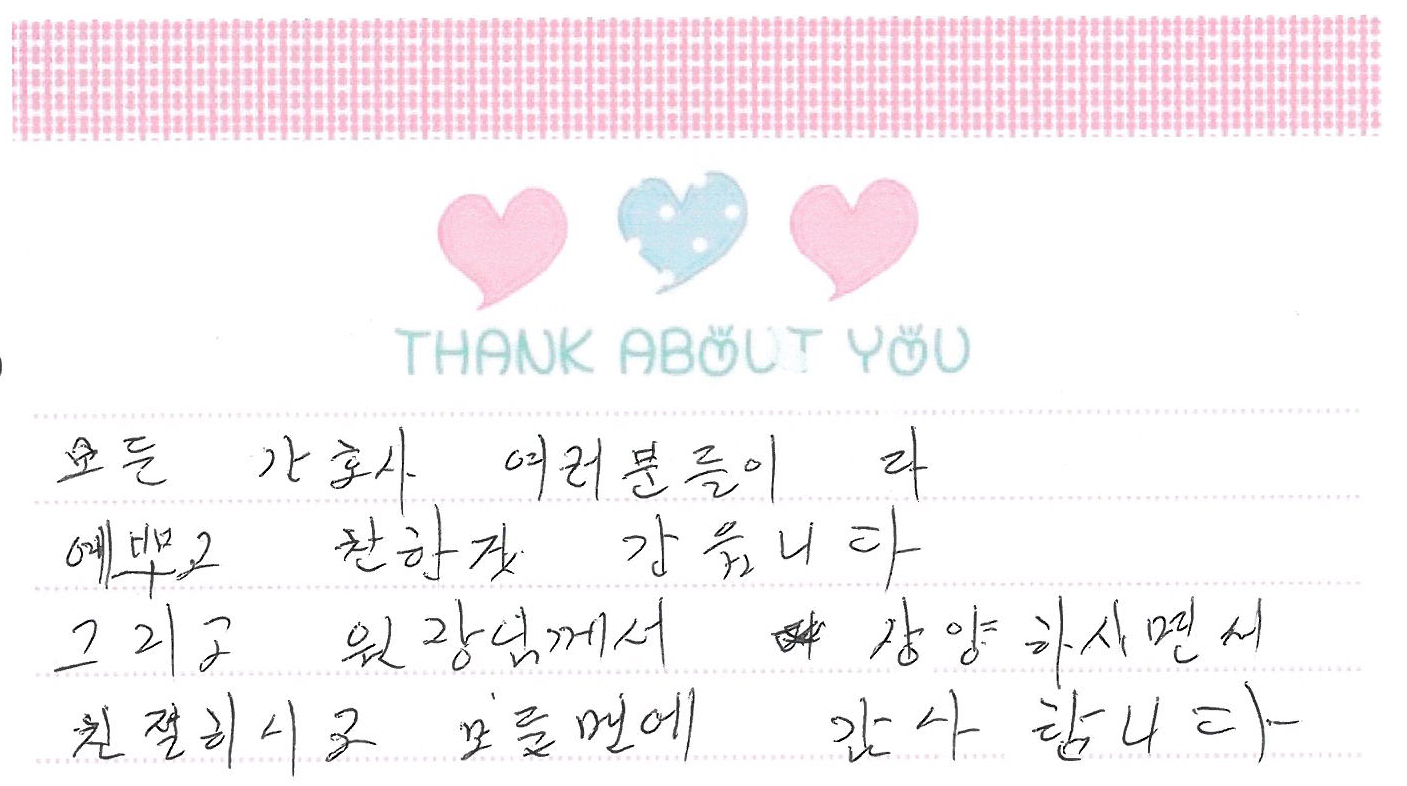 THANK ABOUT YOU
모든 간호사 여러분들이 다
예쁘고 착한것 같읍니다
그리고 원장님께서 상양하시면서
친절하시고 모든면에 감사 합니다